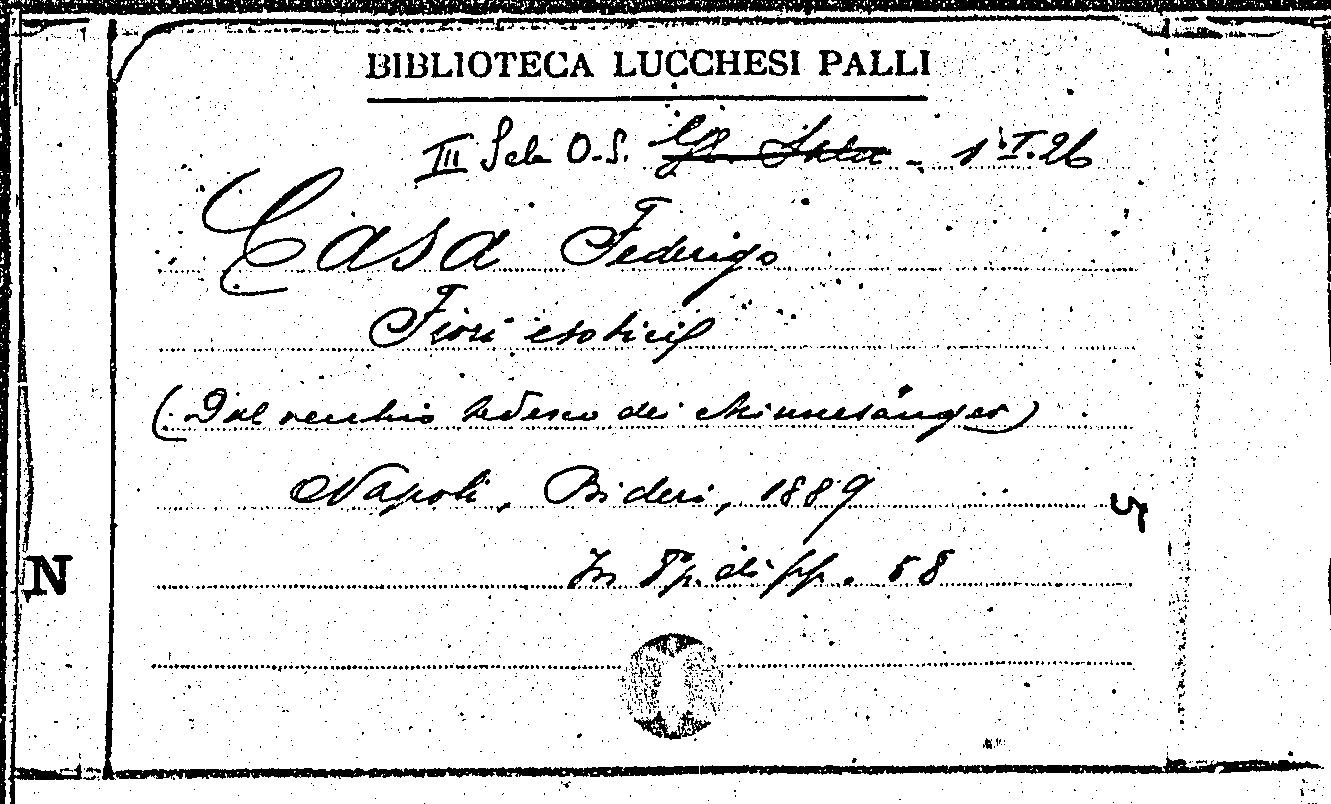 BIBLIOTECA LUCCHESI PALLI
III Sala O.S. Gr. Sala - 1 I. 26
Casa Federigo
Fiori esotici
(Dal vecchio tedesco dei Minnesänger)
Napoli, Bideri, 1889
5
In 8° p. di pp. 58
N